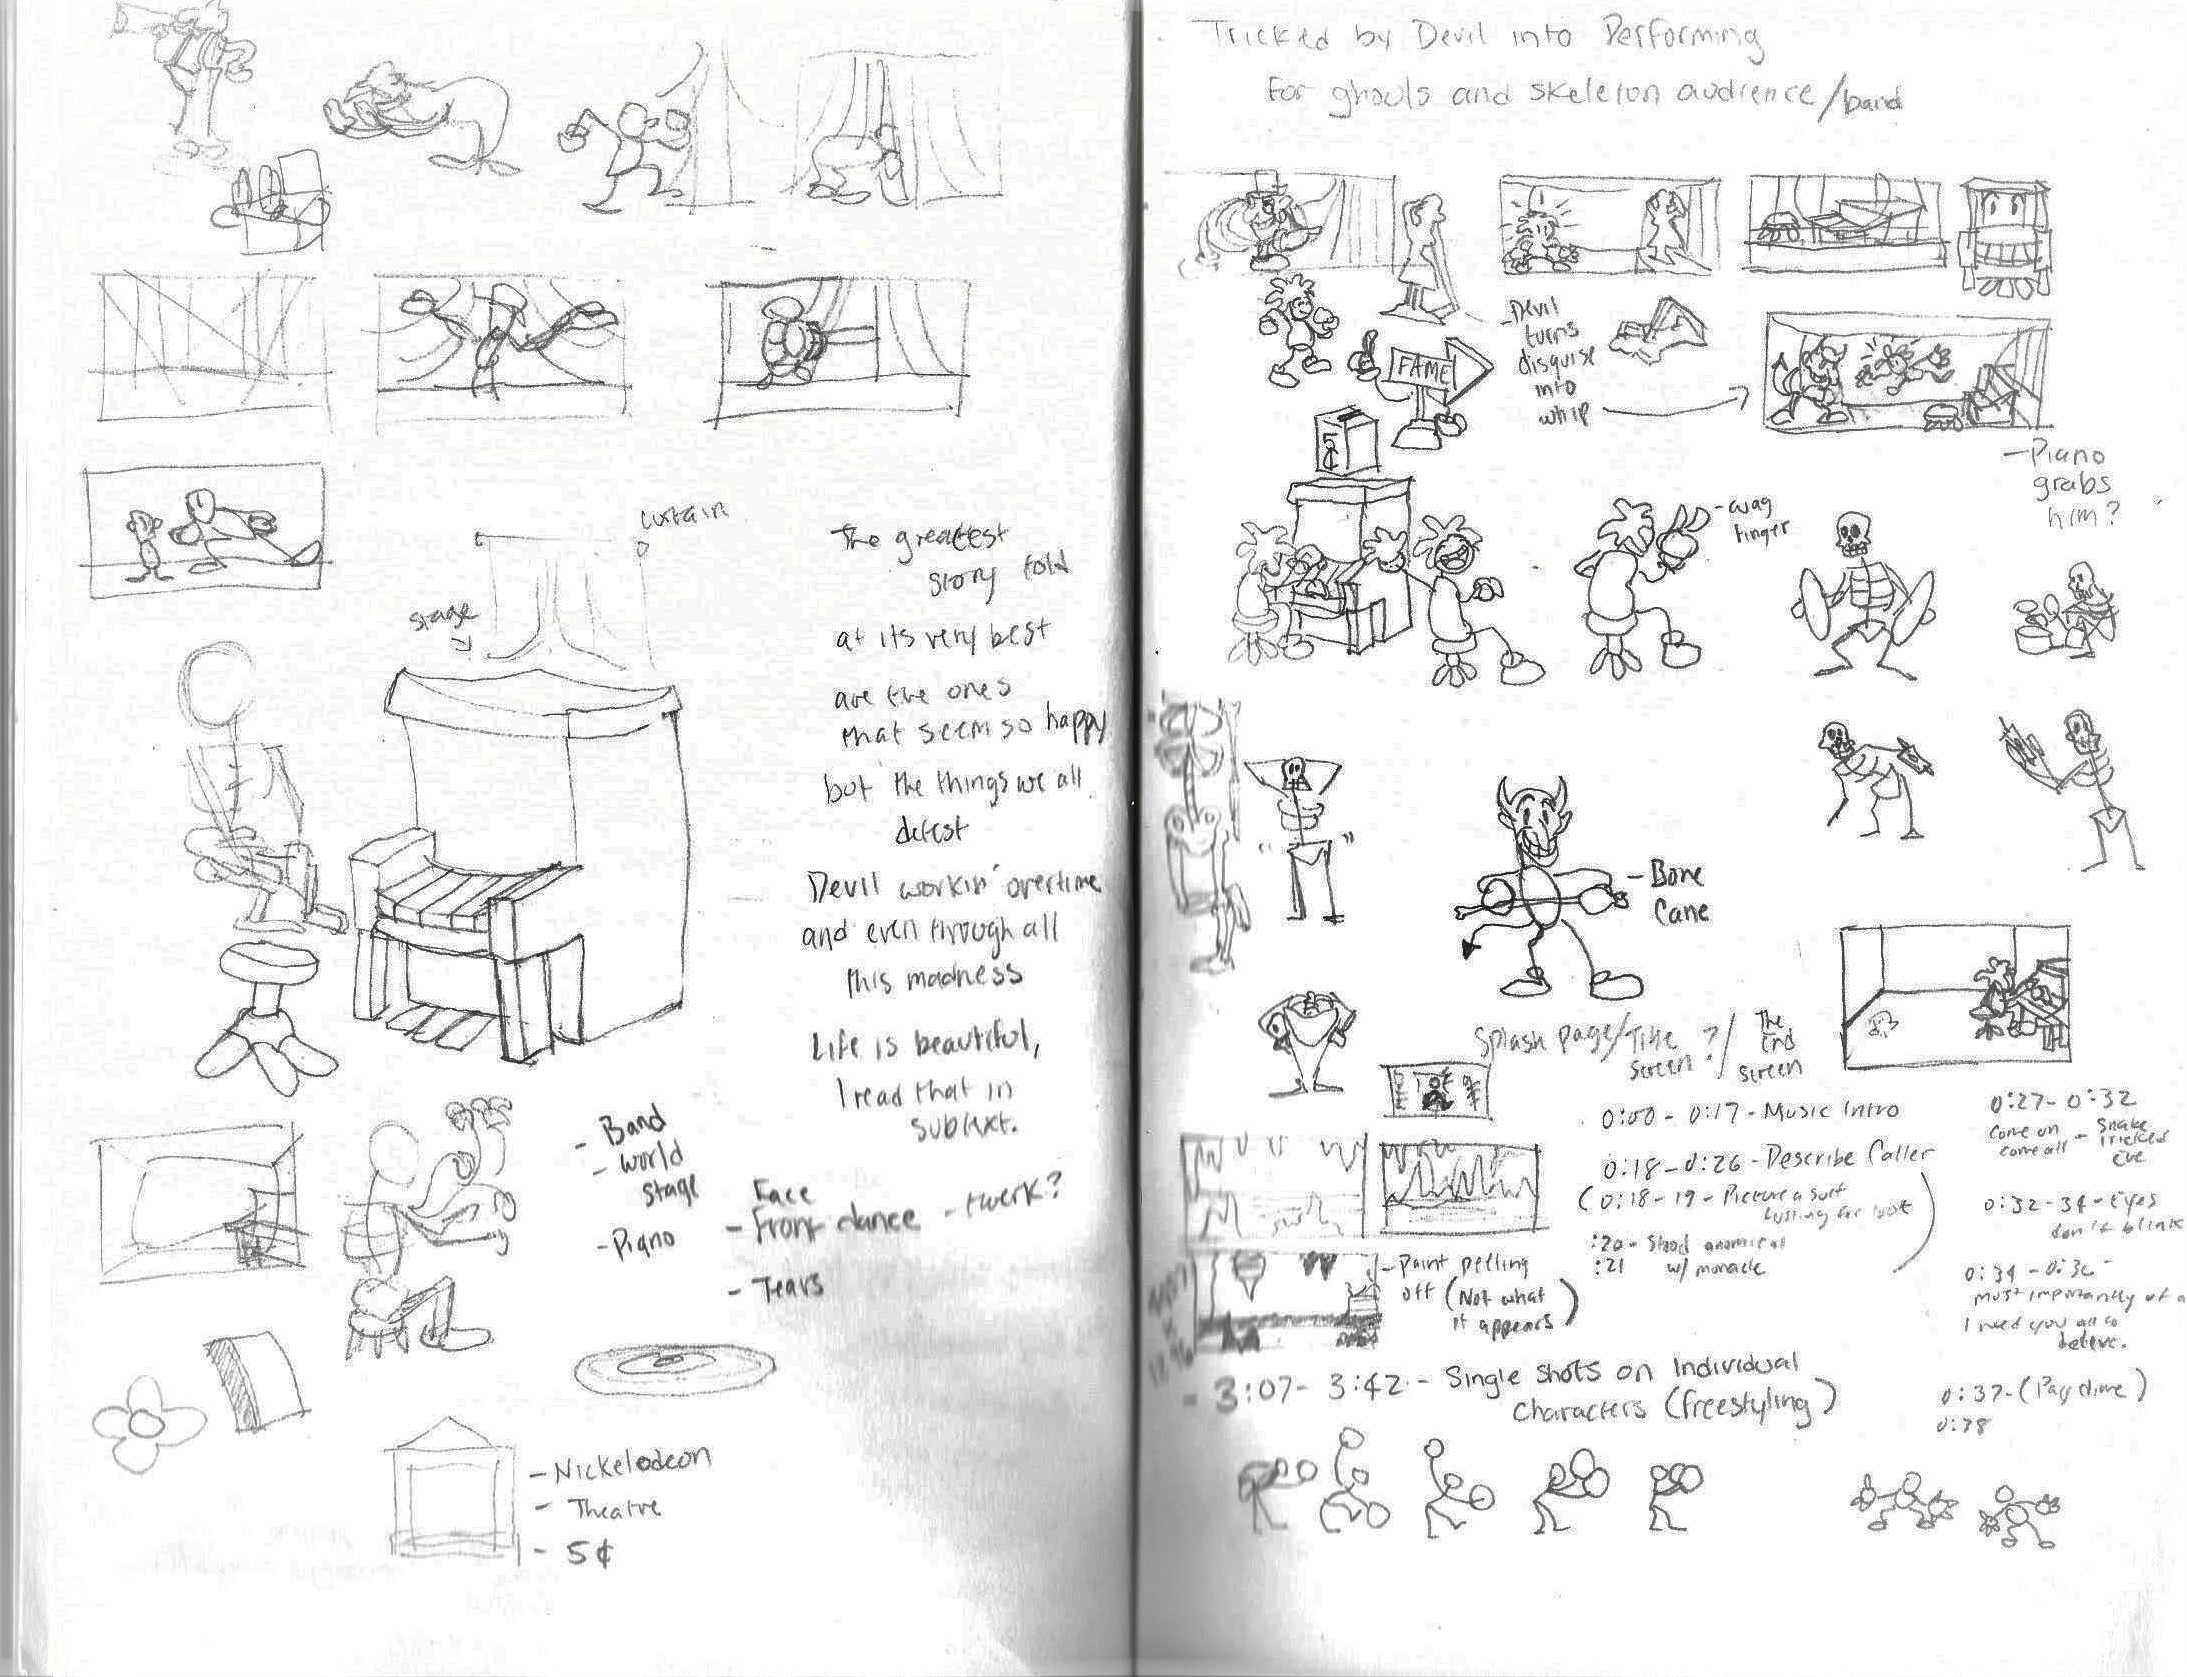 curtain
stage
The greatest
story told
at its very best
are the ones
that seem so happy
but the things we all
detest
Devil workin' overtime
and even through all
this madness
Life is beautiful,
I read that in
subtext.
- Band
- world
stage
- Piano
Face
- Front dance - twerk?
- Tears
- Nickelodeon
- Theatre
- 5¢
Tricked by Devil into Performing
For ghouls and skeleton audience/band
- Devil
turns
disguise
into
whip
FAME
5¢
- Piano
grabs
him?
- wag
finger
- Bone
Cane
Splash page/Title
screen ?/
The
End
screen
0:00 - 0:17 - Music Intro
0:18 - 0:26 - Describe Caller
(0:18 - 19 - Picture a
:20 - Stood
:21 w/ monacle
0:27 - 0:32
Come on
come all - Snake
tricked
Eve
0:32 - 34 - Eyes
don't blink
0:34 -
most importantly of a
I need you all to
believe.
- Paint pelling
off (Not what
it appears)
- 3:07 - 3:42 - Single shots on Individual
Characters (freestyling)
0:37 - (Pay dime)
0:38